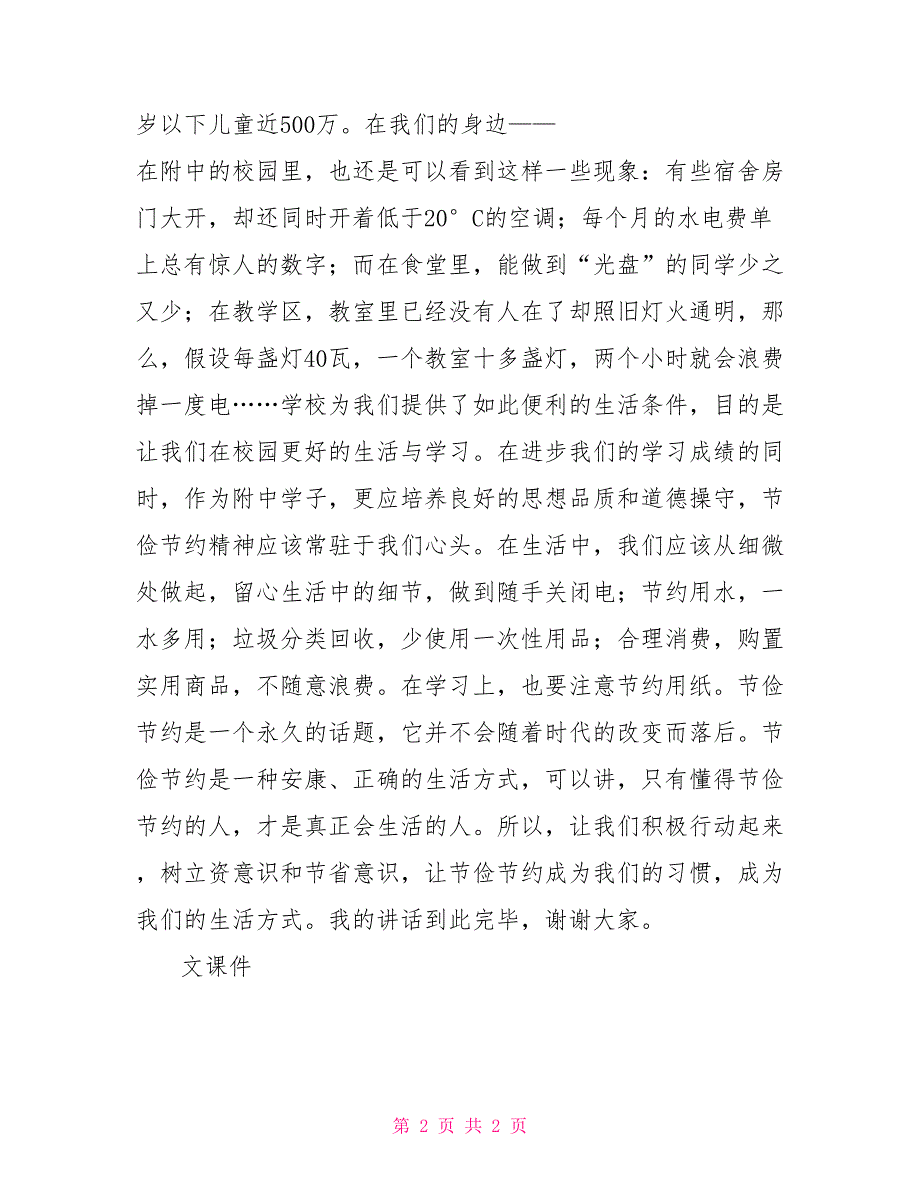 岁以下儿童近500万。在我们的身边——
在附中的校园里，也还是可以看到这样一些现象：有些宿舍房
门大开，却还同时开着低于20°C的空调；每个月的水电费单
上总有惊人的数字；而在食堂里，能做到“光盘”的同学少之
又少；在教学区，教室里已经没有人在了却照旧灯火通明，那
么，假设每盏灯40瓦，一个教室十多盏灯，两个小时就会浪费
掉一度电……学校为我们提供了如此便利的生活条件，目的是
让我们在校园更好的生活与学习。在进步我们的学习成绩的同
时，作为附中学子，更应培养良好的思想品质和道德操守，节
俭节约精神应该常驻于我们心头。在生活中，我们应该从细微
处做起，留心生活中的细节，做到随手关闭电；节约用水，一
水多用；垃圾分类回收，少使用一次性用品；合理消费，购置
实用商品，不随意浪费。在学习上，也要注意节约用纸。节俭
节约是一个永久的话题，它并不会随着时代的改变而落后。节
俭节约是一种安康、正确的生活方式，可以讲，只有懂得节俭
节约的人，才是真正会生活的人。所以，让我们积极行动起来
，树立资意识和节省意识，让节俭节约成为我们的习惯，成为
我们的生活方式。我的讲话到此完毕，谢谢大家。
文课件
第 2 页 共 2 页